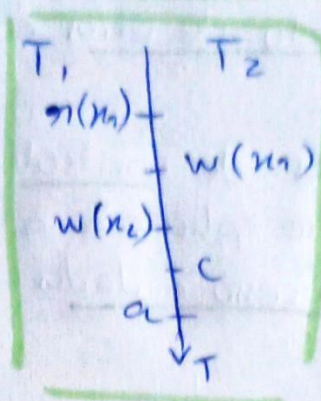 T₁ T₂
r(x₁)
w(x₁)
w(x₂)
c
a
T